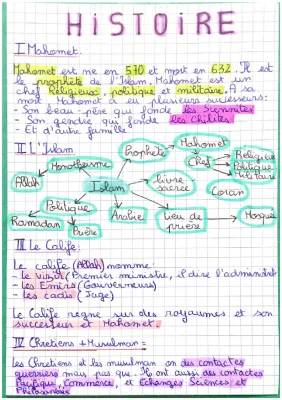 HISTOIRE
I Mahomet.
Mahomet est né en 570 et mort en 632. Il est
le prophète de l'Islam. Mahomet est un
chef Religieux, politique et militaire. A sa
mort Mahomet à eu plusieurs successeurs:
- Son beau-père qui fonde les Sunnites
- Son gendre qui fonde les Chiites
- Et d'autre famille
II L'Islam
Mahomet
Prophète
Monothéisme
Chef
Religieux
Politique
Militaire
Allah
Islam
livre sacrée
Coran
Politique
Ramadan
Prière
Arabie
lieu de prière
Mosquée
III Le Calife:
Le calife (Allah) nomme:
- Le vizir (Premier ministre, il dire l'administrat
- Les Emirs (Gouverneurs)
- Les cadis (Juge)
Le Calife règne sur des royaumes et son
successeur et Mahomet.
IV Chrétiens + Musulman:
Les Chrétiens et les musulman on des contactes
guerriers mais pas que. Ils ont aussi des contactes
Pacifique, Commerce, et Echanges Sciences et
Philosophie